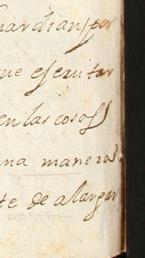 uardianster
ue escriuir
en las cosas
na maneras
te de alargar